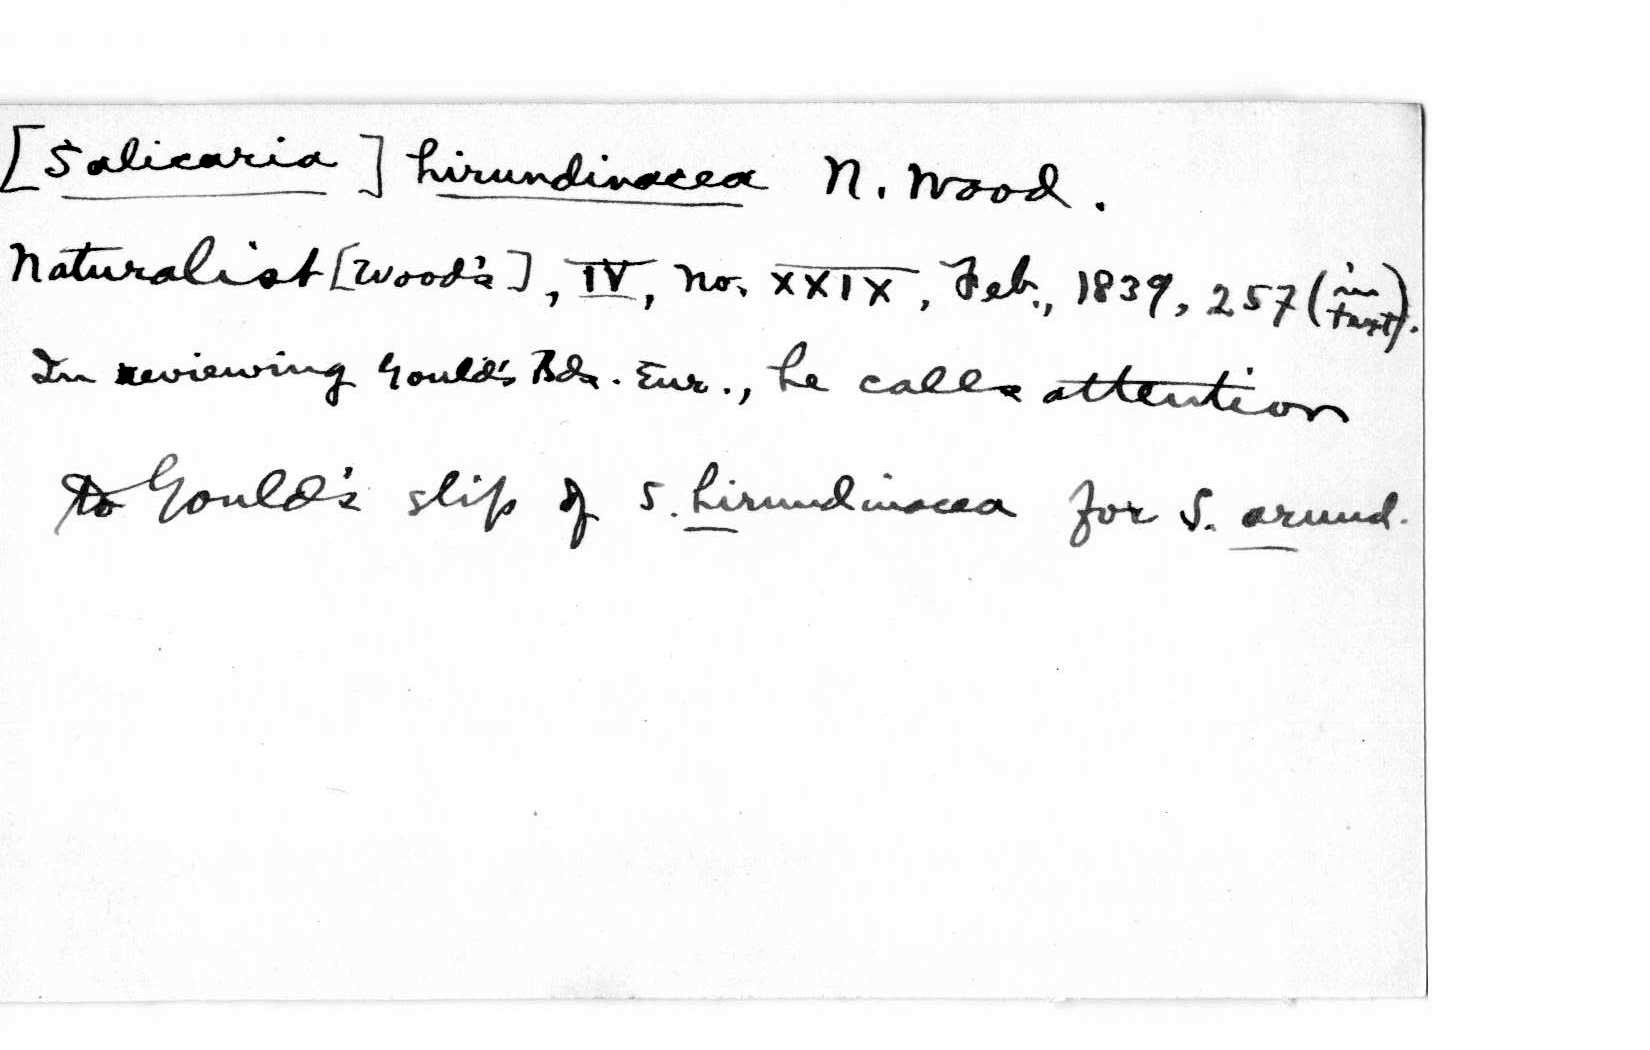 [Salicaria] hirundinacea N. Wood.
Naturalist [Wood's], IV, no. XXIX, Feb., 1839, 257 (in text).
In reviewing Gould's Bds. Eur., he calls attention
to Gould's slip of S. hirundinacea for S. arund.